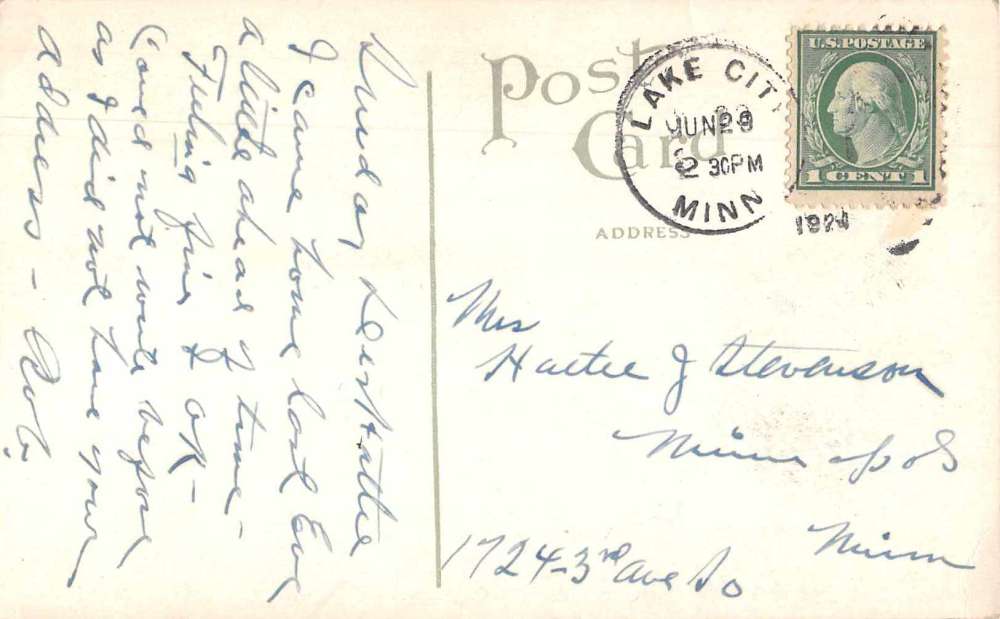 Post
Card
ADDRESS
LAKE CITY
JUN 29
2 30PM
MINN
1924
U.S. POSTAGE
1 CENT 1
Sunday Dear Hattie
I came home last Eve
a little ahead of time -
Feeling fine & OK -
Could not write before
as I did not have your
address - Rob.
Mrs
Hattie J Stevenson
Minneapols
Minn
1724-3rd Ave So